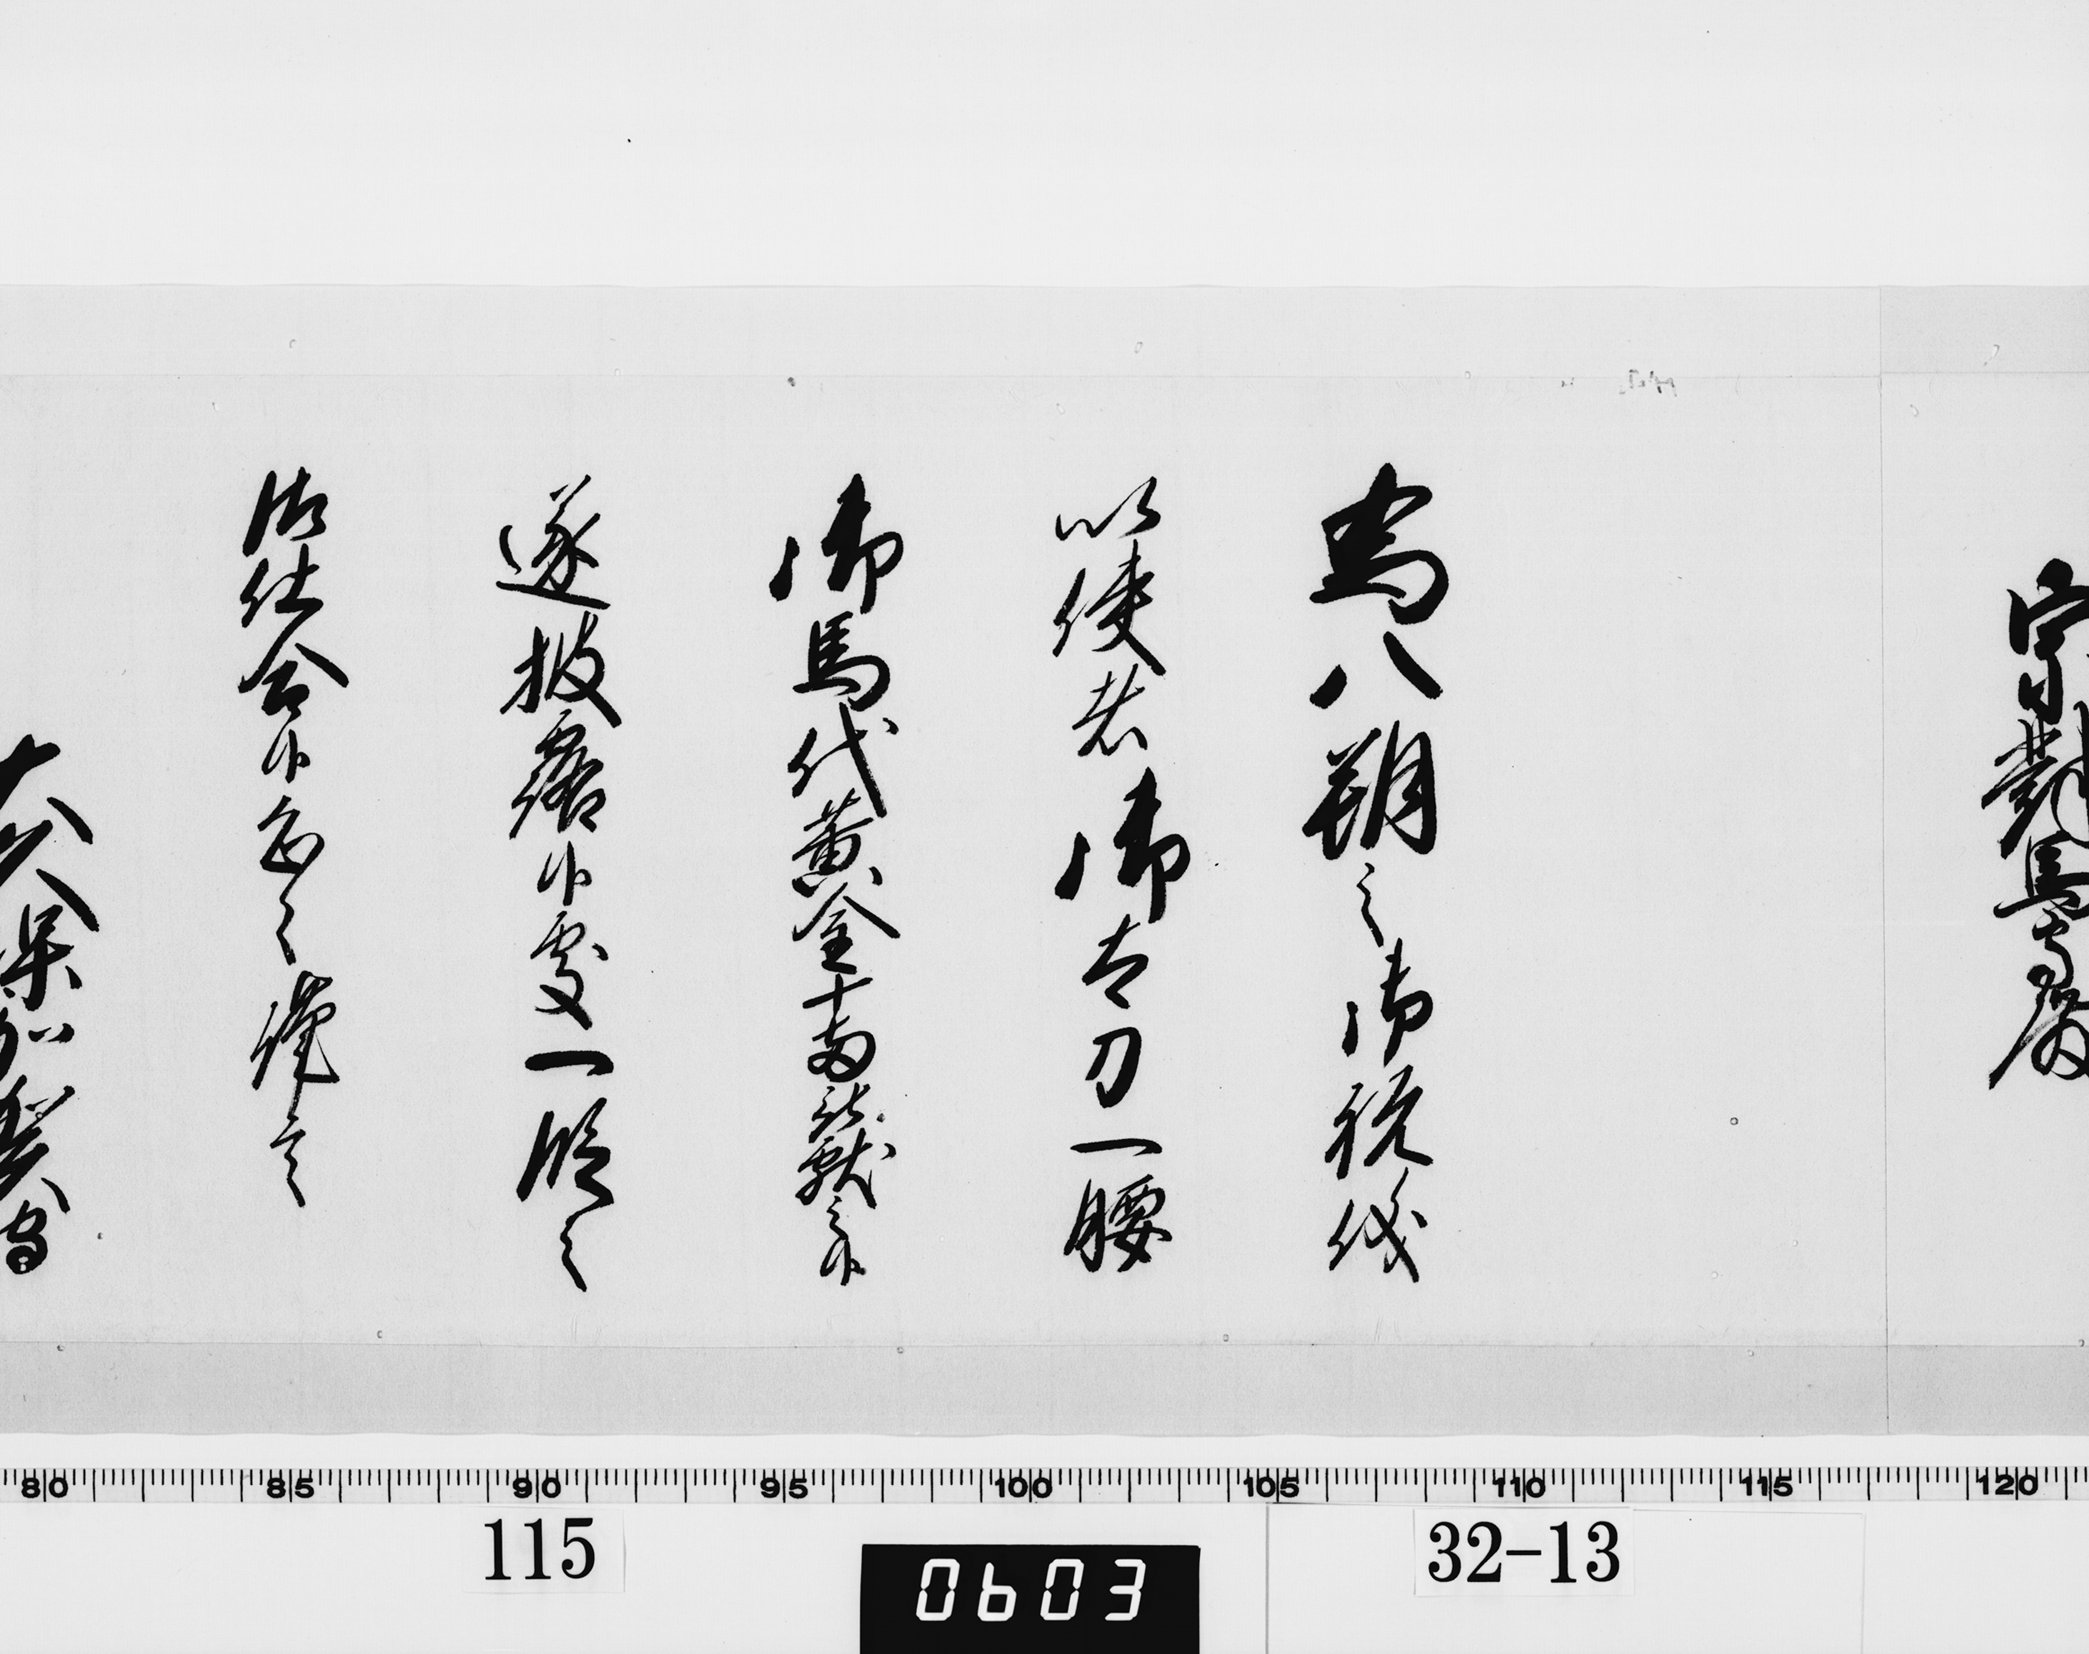 宗對馬守殿
為八朔之御祝儀
以使者御太刀一腰
御馬代黄金十両被獻之候
遂披露候處一段之
御仕合候恐々謹言
大久保加賀守
80 85 90 95 100 105 110 115 120
115
0603
32-13